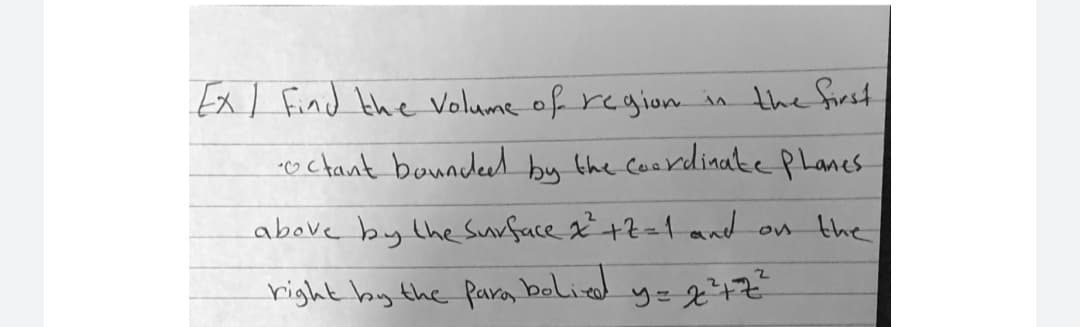 Ex / Find the Volume of region in the first
octant bounded by the Coordinate planes
above by the Surface x²+z=1 and on the
right by the parabolied y= x²+z²